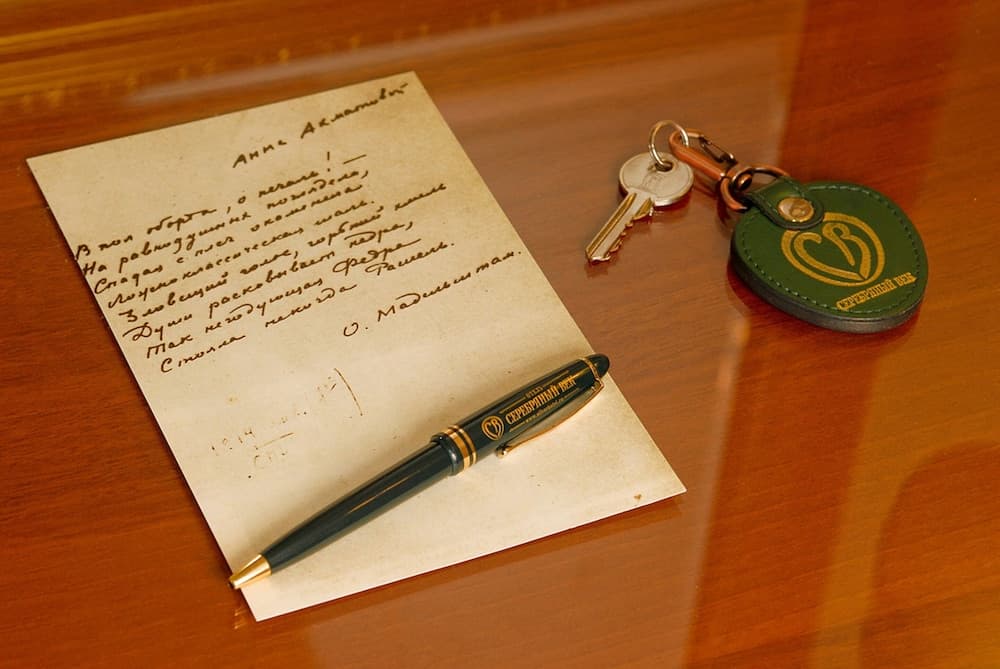 Анне Ахматовой
В пол оборота, о печаль! —
На равнодушных поглядела,
Спадая с плеч окаменела
Ложноклассическая шаль.
Зловещий голос, горький хмель
Души расковывает недра,
Так негодующая Федра
Стояла некогда Рашель.
О. Мадельштам.
1914
СПБ
ОТЕЛЬ
СЕРЕБРЯНЫЙ ВЕК
СВ
СВ
СЕРЕБРЯНЫЙ ВЕК